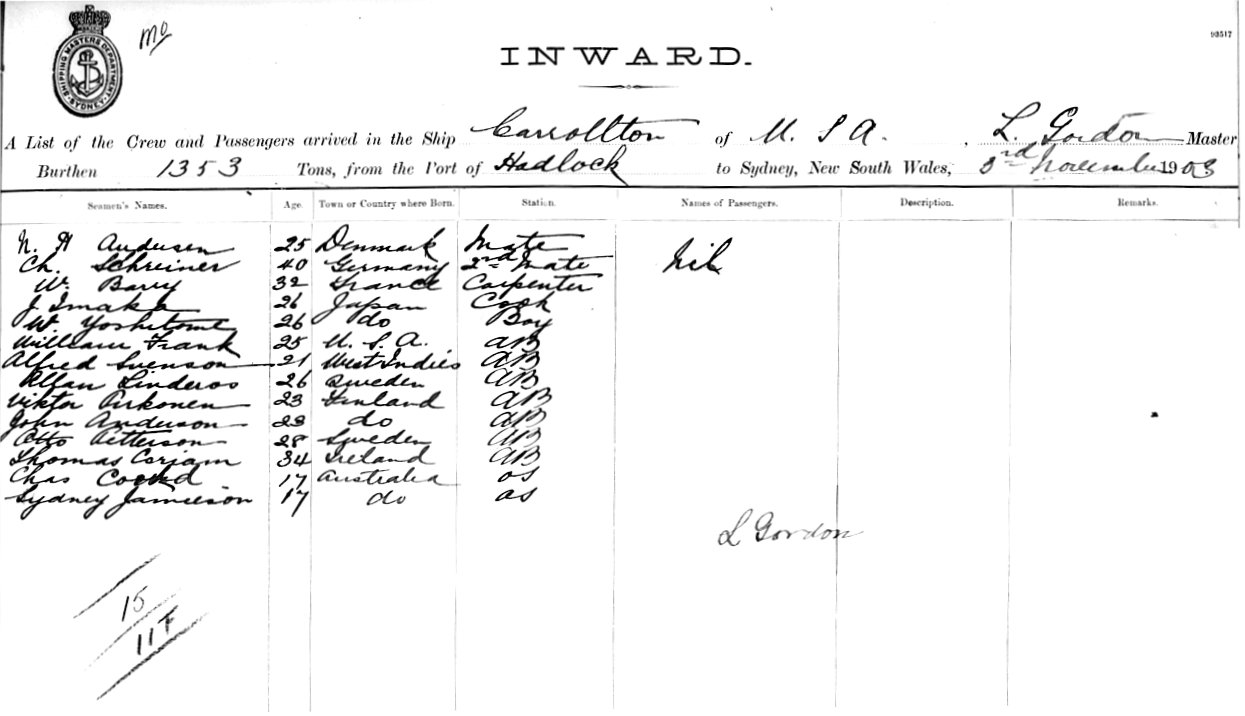 SHIPPING MASTERS DEPARTMENT SYDNEY
Mo
93517
INWARD.
A List of the Crew and Passengers arrived in the Ship Carrollton of U. S A. , L. Gordon Master
Burthen 1353 Tons, from the Port of Hadlock to Sydney, New South Wales, 3rd November 1903
Seamen's Names. Age. Town or Country where Born. Station. Names of Passengers. Description. Remarks.
N. H Andersen 25 Denmark Mate Nil
Ch. Schreiner 40 Germany 2nd Mate
W. Barry 32 France Carpenter
J Imaka 26 Japan Cook
W. Yoshitome 26 do Boy
William Frank 25 U. S. A. AB
Alfred Svenson 21 West Indies AB
Allan Linderos 26 Sweden AB
Viktor Pirkonen 23 Finland AB
John Anderson 23 do AB
Otto Petterson 28 Sweden AB
Thomas Corjam 34 Ireland AB
Chas 17 Australia OS
Sydney Jamieson 17 do OS
L Gordon
15
11 F